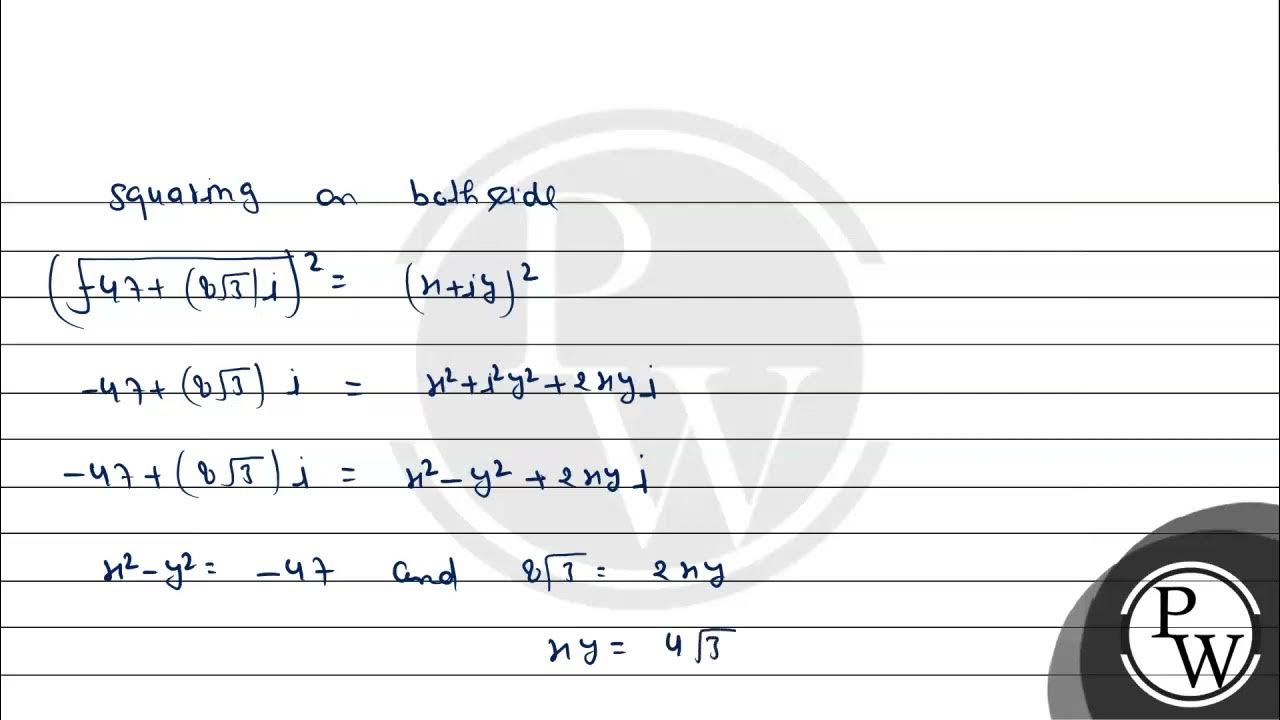 squaring on both side
(√-47+(8√3)i)² = (x+iy)²
-47+(8√3) i = x²+i²y²+2xyi
-47+(8√3)i = x²-y²+2xyi
x²-y²= -47 and 8√3= 2xy
xy= 4√3
P
W
P
W